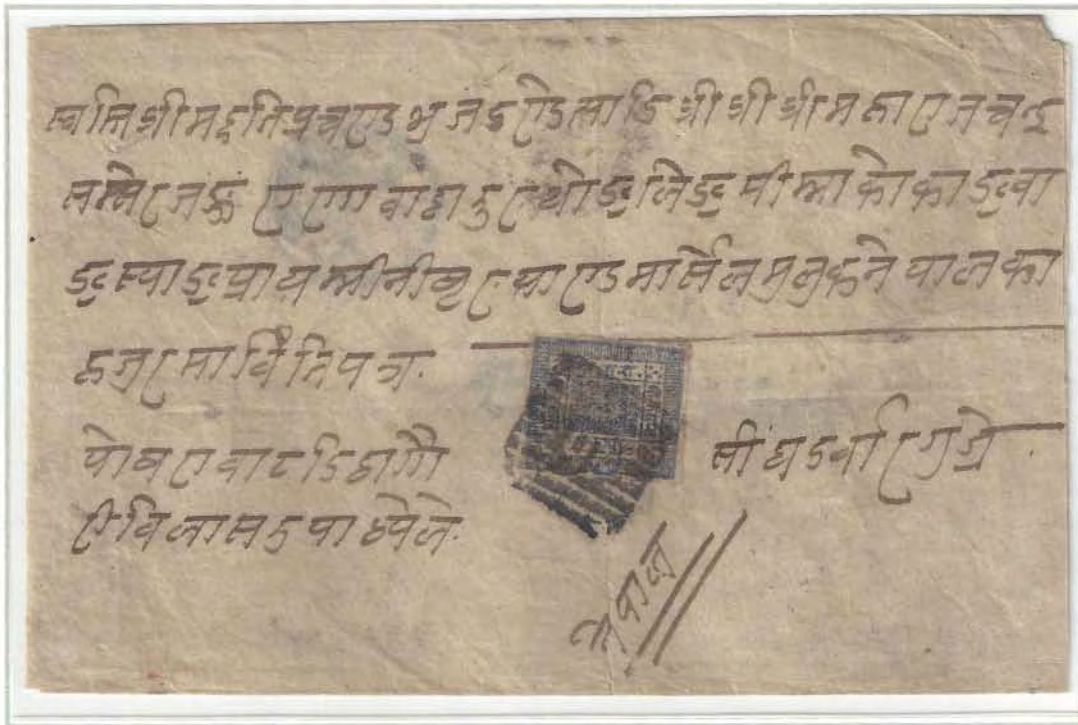 स्वस्ति श्रीमदति प्रचण्ड भुजदण्डेत्यादि श्री श्री श्री महाराज चन्द्र
सम्सेर जङ्ग राणा बहादुर थोङ्लिङ् पीम्मा कोकाङ्वा
ङ्स्याङ् प्राइम मीनीष्टर याण्ड मार्सैल मुलुक नेपालका
हजुरमा विंतिपत्र
पोखरा वाट डिठा गौ
री विलास उपाध्येले
सींघ दर्वार
नेपाल